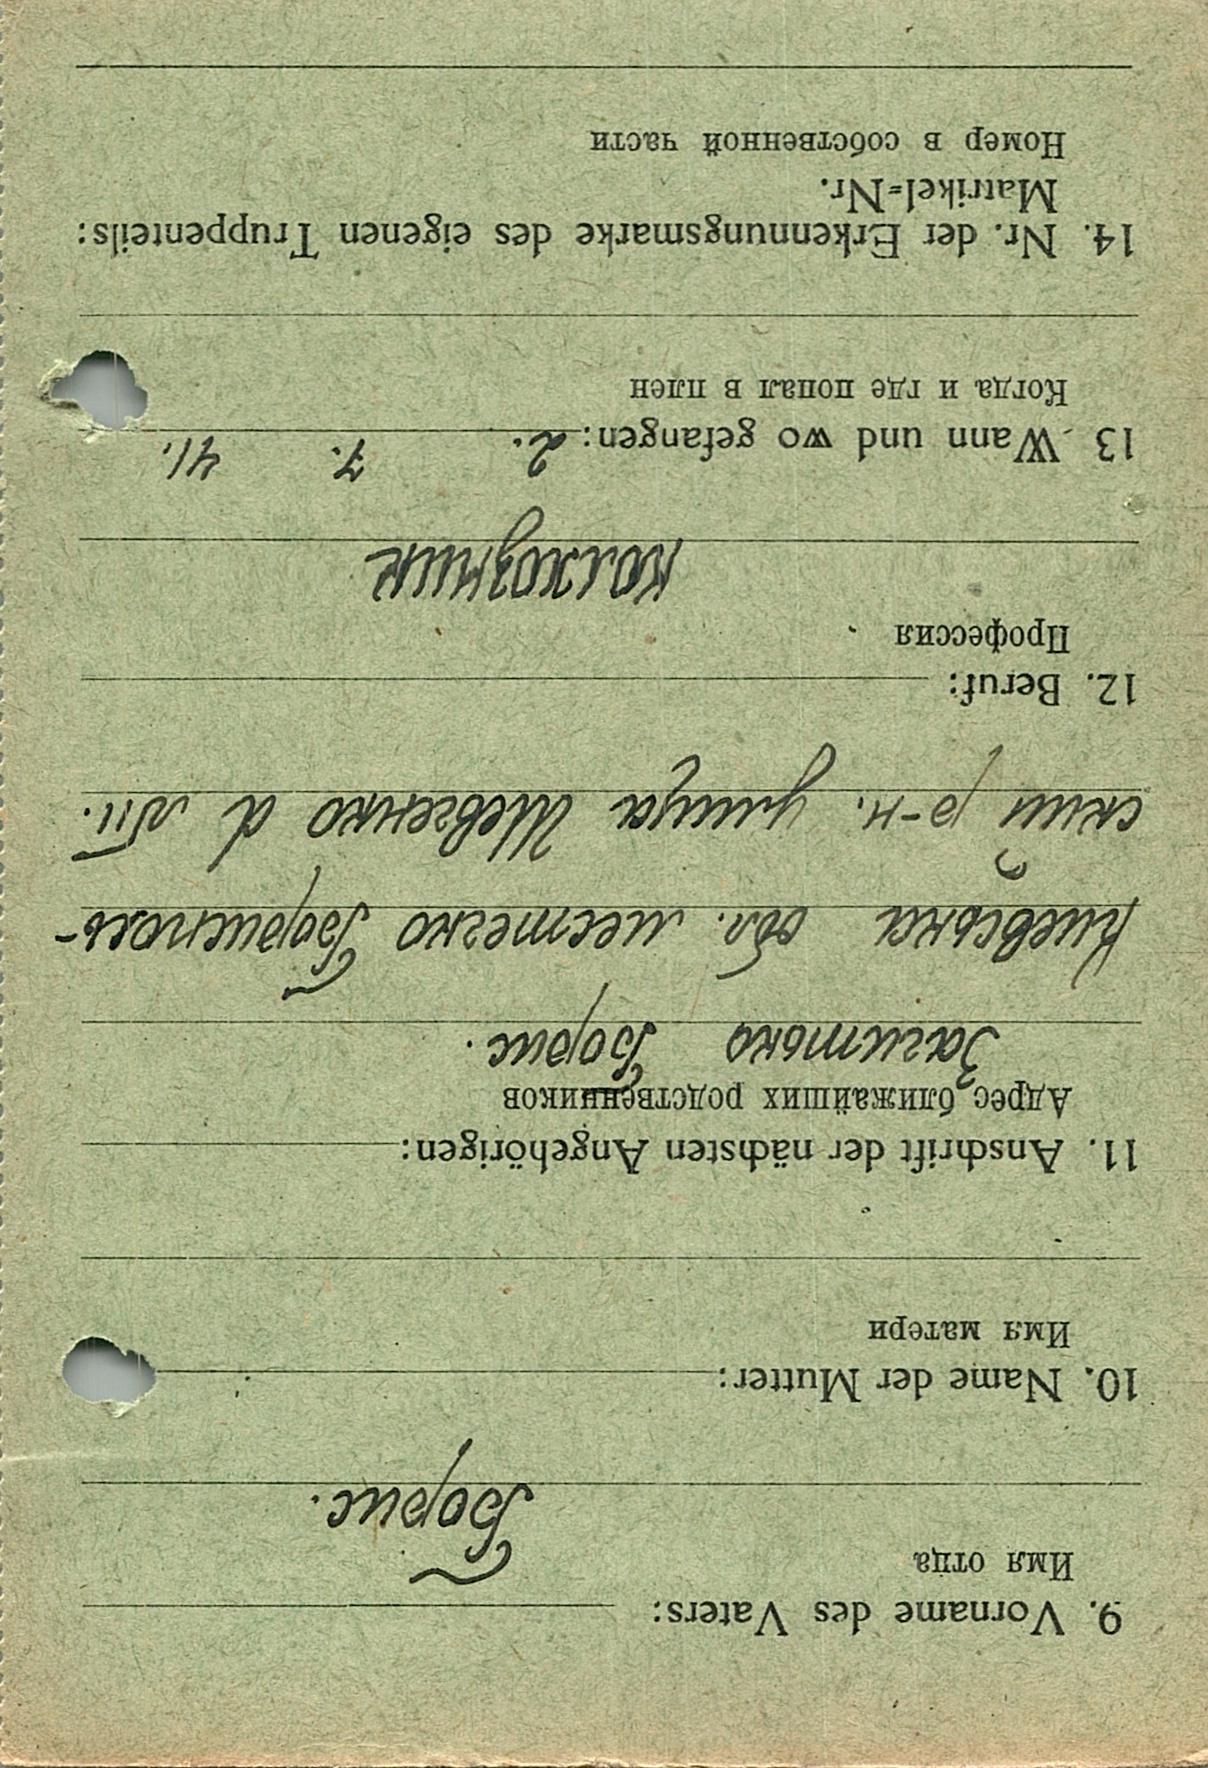 9. Vorname des Vaters:
Имя отца
Борис.
10. Name der Mutter:
Имя матери
11. Anschrift der nächsten Angehörigen:
Адрес ближайших родственников
Загитько Борис.
Киевська обл. местечко Борисполь-
ский р-н. улица Шевченко
12. Beruf:
Профессия
колхозник
13 Wann und wo gefangen: 2. 7. 41.
Когда и где попал в плен
14. Nr. der Erkennungsmarke des eigenen Truppenteils:
Matrikel=Nr.
Номер в собственной части